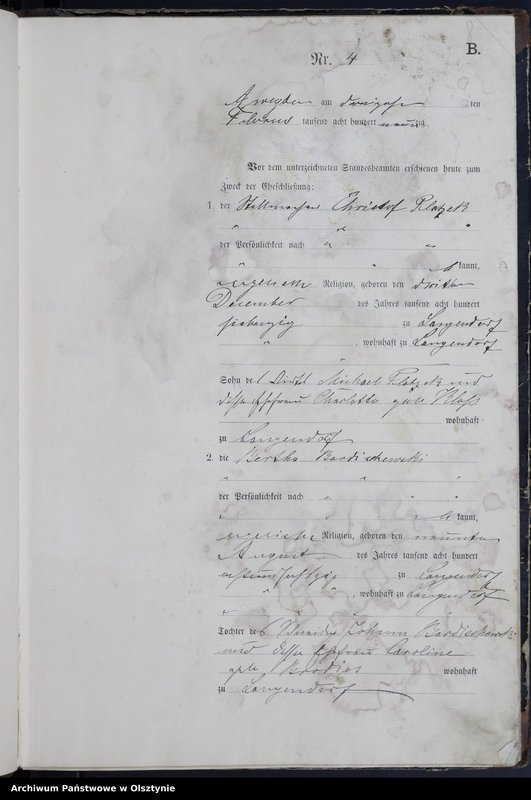 B.
Nr. 4
Aweyden am dreizehnten
Februar tausend acht hundert neunzig
Vor dem unterzeichneten Standesbeamten erschienen heute zum
Zweck der Eheschließung:
1. der Stellmacher Christof Platzek
der Persönlichkeit nach
kannt,
Religion, geboren den dritten
December des Jahres tausend acht hundert
siebenzig zu Langendorf
, wohnhaft zu Langendorf
Sohn des Michael Platzek und
dessen Ehefrau Charlotte geb.
wohnhaft
zu Langendorf
2. die Bertha Bardischewski
der Persönlichkeit nach
kannt,
Religion, geboren den neunten
August des Jahres tausend acht hundert
achtundsechzig zu Langendorf
, wohnhaft zu Langendorf
Tochter des Schneider Johann Bardischewski
und dessen Ehefrau Caroline
geb. wohnhaft
zu Langendorf
Archiwum Państwowe w Olsztynie